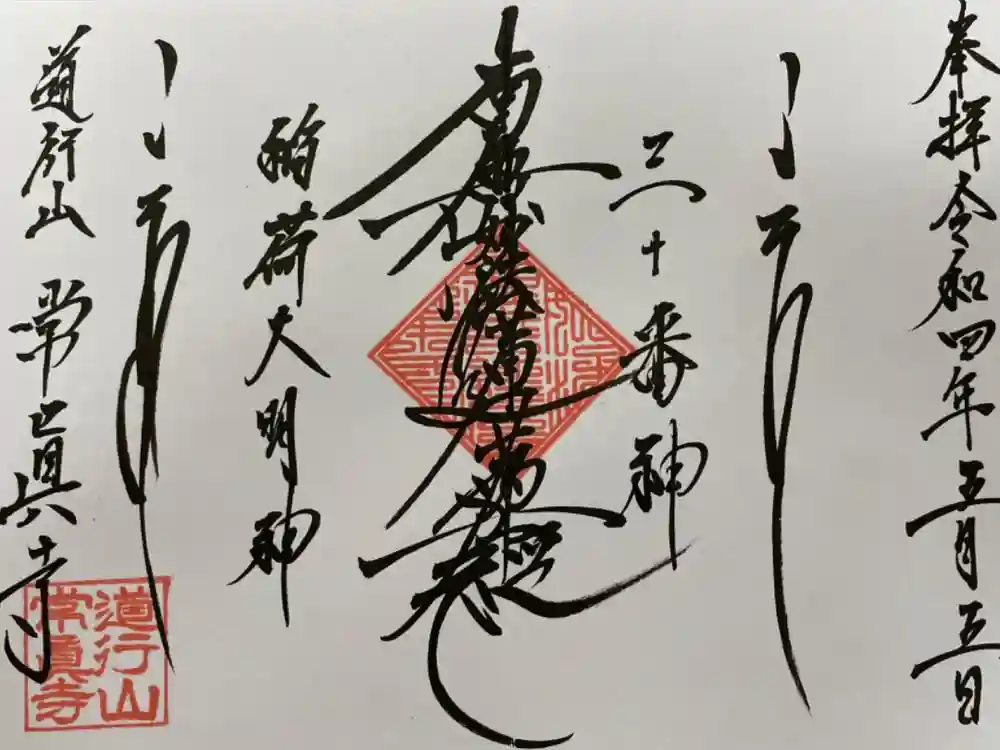 奉拝令和四年五月五日
三十番神
南無妙法蓮華經
稲荷大明神
道行山常眞寺
道行山
常眞寺